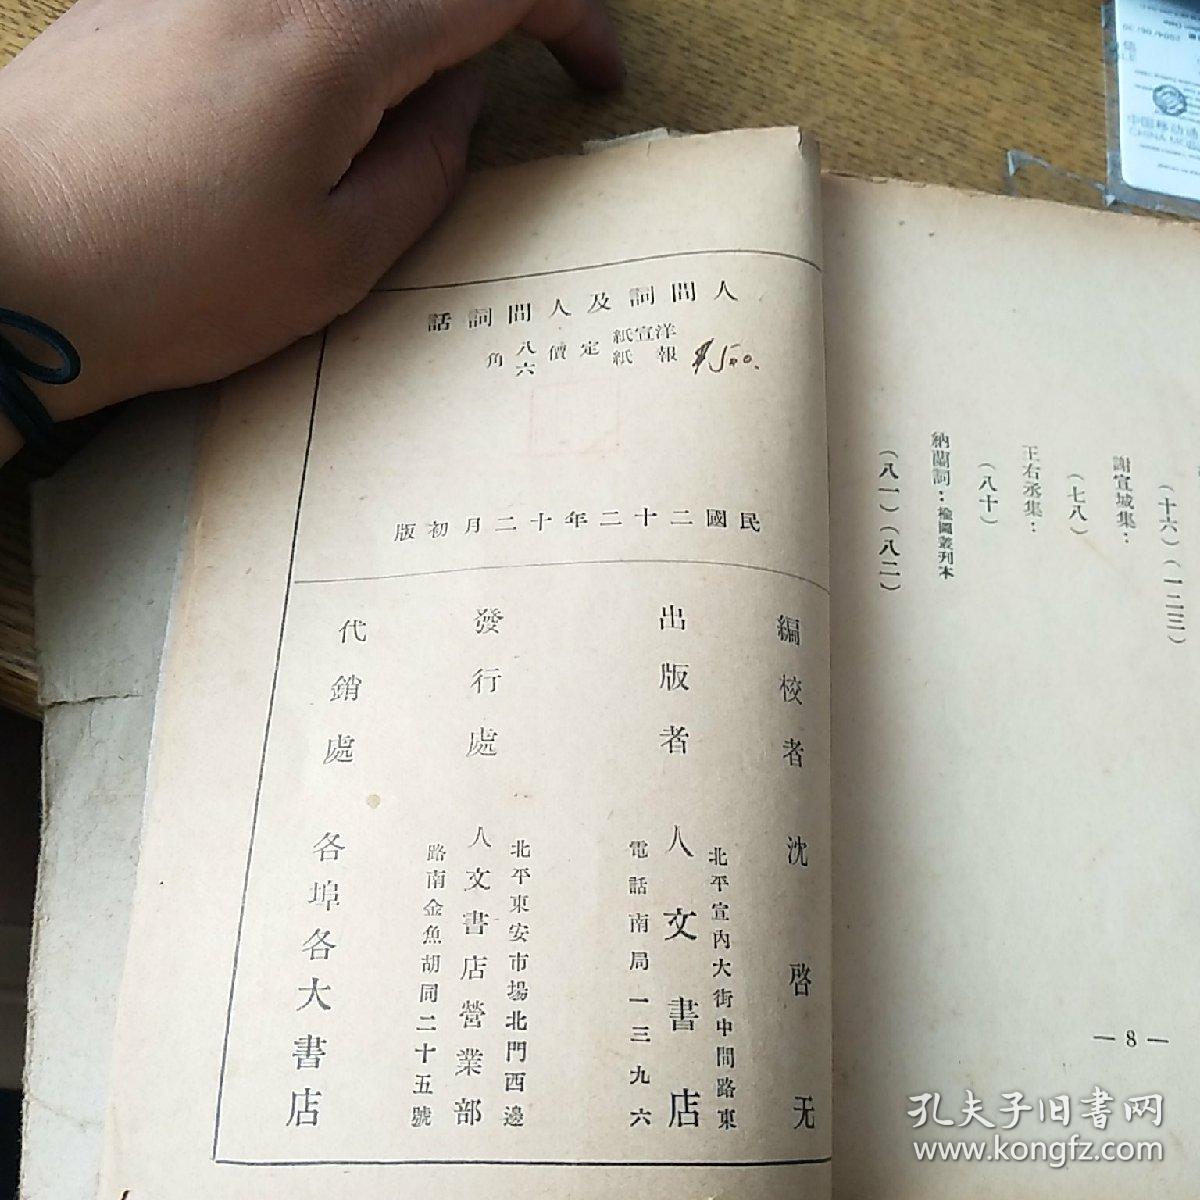 人間詞及人間詞話
洋宣紙 報紙 定價 八 六 角
$5.00.
民國二十二年十二月初版
編校者 沈啓无
出版者 人文書店
北平宣內大街中間路東
電話南局一三九六
發行處 人文書店營業部
北平東安市場北門西邊
路南金魚胡同二十五號
代銷處 各埠各大書店
(十六)(一二三)
謝宣城集：
(七八)
王右丞集：
(八十)
納蘭詞：楡園叢刊本
(八一)(八二)
— 8 —
中国移动通
CHINA MOBI
2004/06/30
孔夫子旧书网
www.kongfz.com